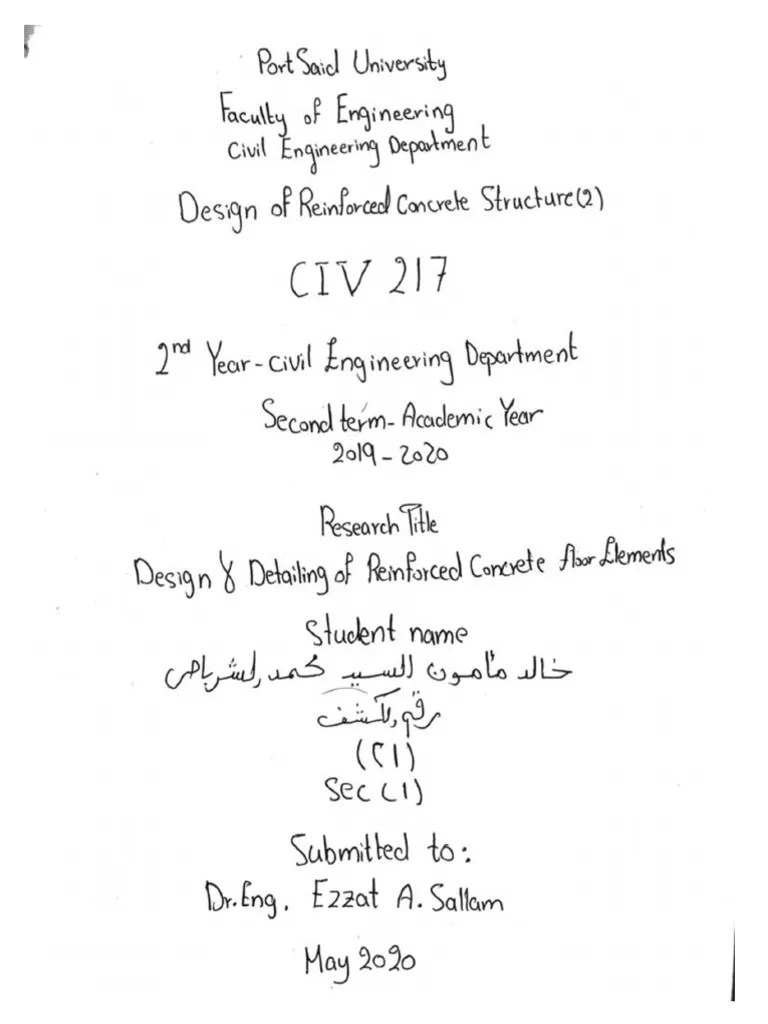 Port Said University
Faculty of Engineering
Civil Engineering Department
Design of Reinforced Concrete Structure (2)
CIV 217
2nd Year - Civil Engineering Department
Second term - Academic Year
2019 - 2020
Research Title
Design & Detailing of Reinforced Concrete floor Elements
Student name
خالد مأمون السيد محمد الشرباصى
رقم الكشف
(٢١)
Sec (1)
Submitted to:
Dr.Eng. Ezzat A. Sallam
May 2020